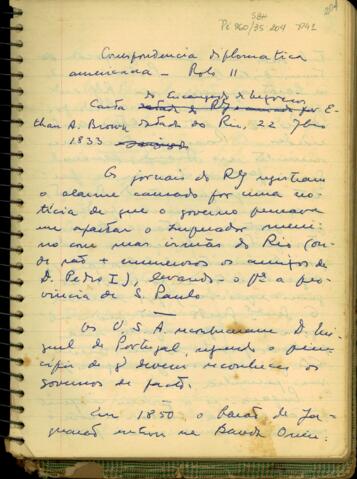 204
SBH
Pi 960/35 204 P41
Correspondencia diplomatica
americana – Rolo 11
do Encarregado de Negocios,
Carta datada do RJ
E-
than A. Brown datada do Rio, 22
1833
Os jornais do RJ registram
o alarme causado por uma no-
ticia de que o governo pensava
em afastar o Imperador meni-
no com suas irmãs do Rio (on-
de são + numerosos os amigos de
D. Pedro I), levando-o pª a pro-
vincia de S. Paulo
Os U.S.A. reconheceram D. Mi-
guel de Portugal, segundo o prin-
cipio de q devem reconhecer os
governos de facto.
Em 1850 o Barão de Ja-
guarão entrou na Banda Orien-